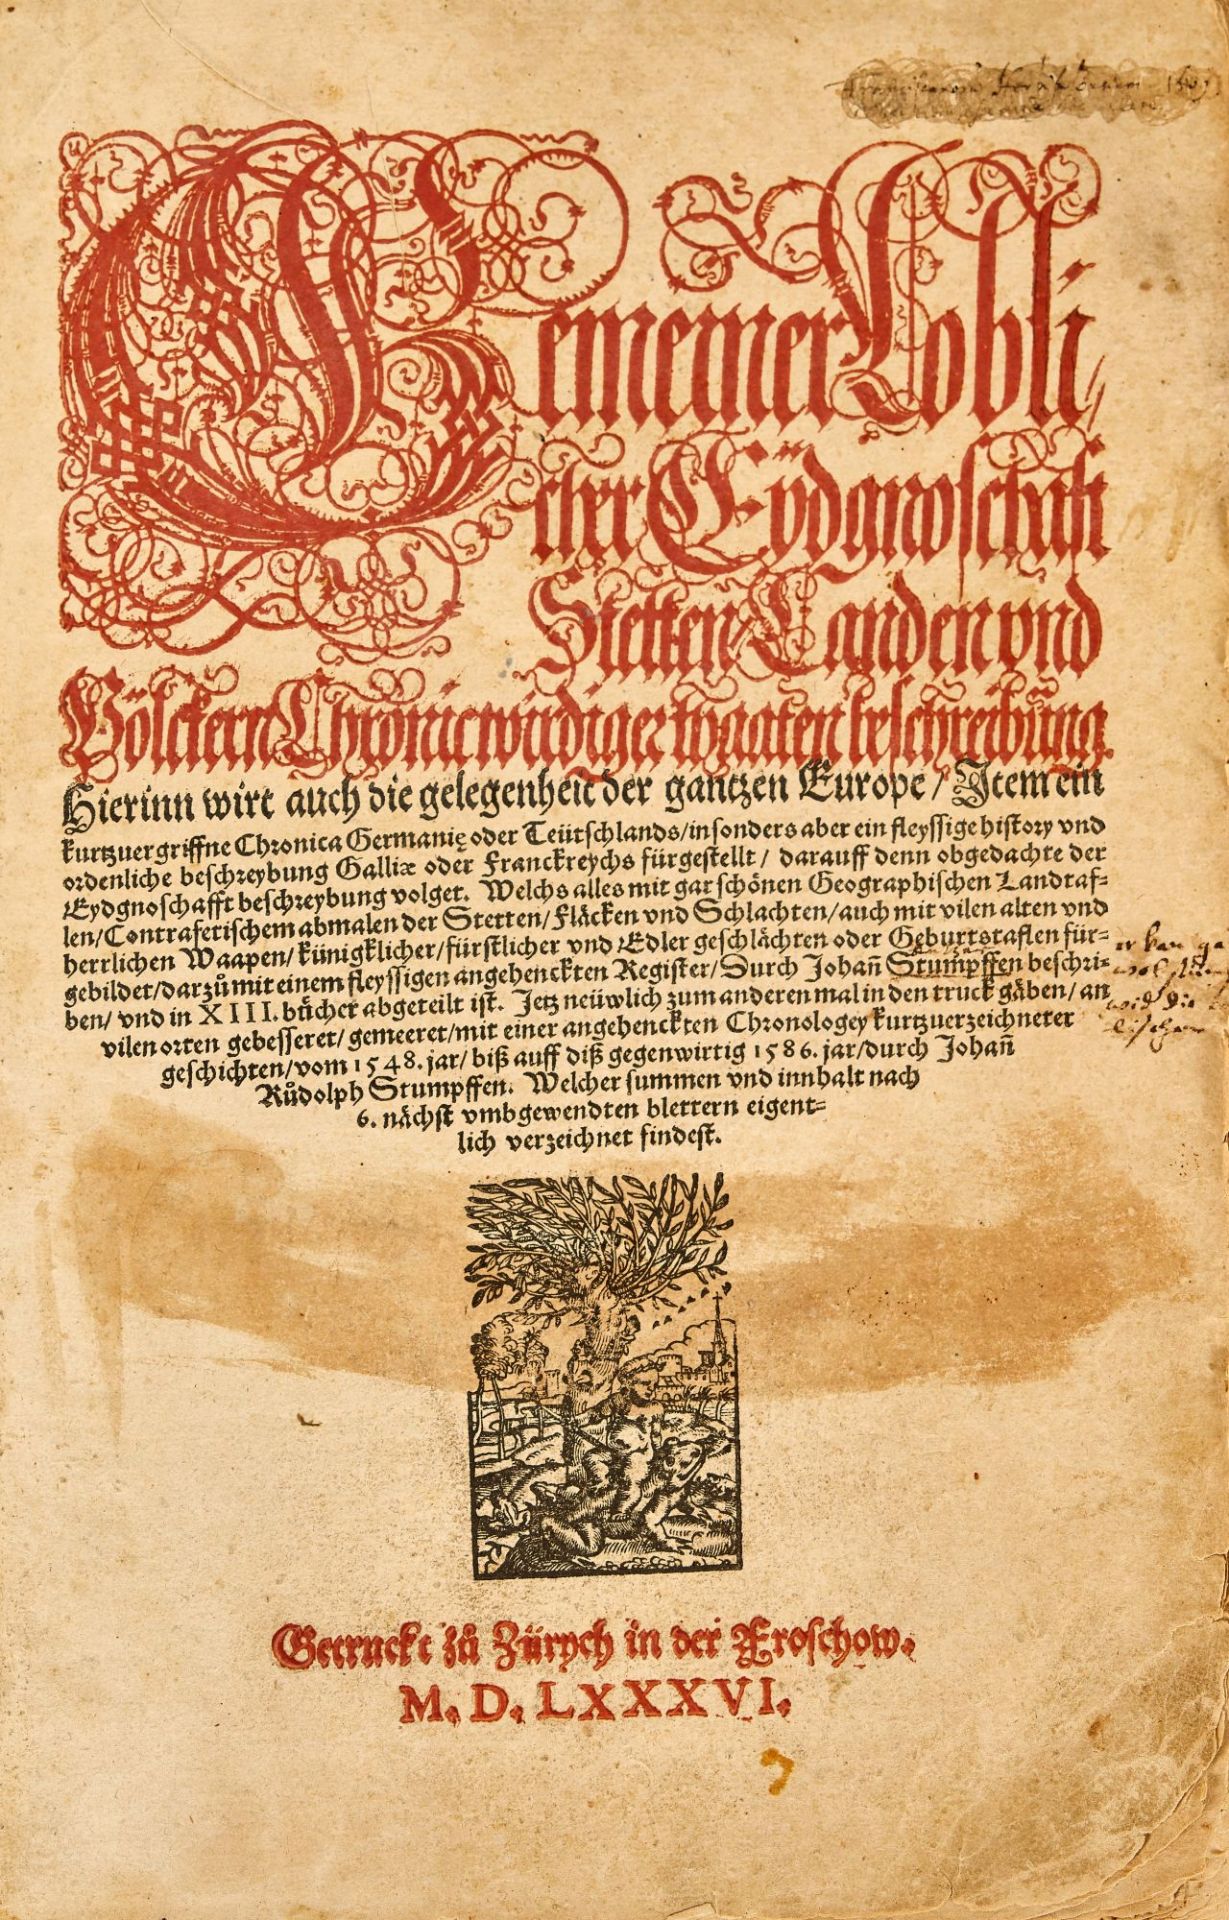 Gemeiner Lobli/
cher Eydgnoschafft
Stetten Landen vnd
Völckern Chronicwirdiger thaaten beschreibung.
Hierinn wirt auch die gelegenheit der gantzen Europe / Item ein
kurtzuergriffne Chronica Germanię oder Teütschlands/ in sonders aber ein fleyssige history vnd
ordenliche beschreybung Galliæ oder Franckreychs fürgestellt / darauff denn obgedachte der
Eydgnoschafft beschreybung volget. Welchs alles mit gar schönen Geographischen Landtaf-
len/ Contrafetischem abmalen der Stetten/ Fläcken vnd Schlachten/ auch mit vilen alten vnd
herrlichen Waapen/ künigklicher/ fürstlicher vnd Edler geschlächten oder Geburtstaflen für-
gebildet/ darzů mit einem fleyssigen angehenckten Register/ Durch Johañ Stumpffen beschri-
ben/ vnd in XIII. bücher abgeteilt ist. Jetz neüwlich zum anderen mal in den truck gäben/ an
vilen orten gebesseret/ gemeeret/ mit einer angehenckten Chronologey kurtzuerzeichneter
geschichten/ vom 1548. jar/ biß auff diß gegenwirtig 1586. jar/ durch Johañ
Růdolph Stumpffen. Welcher summen vnd innhalt nach
6. nächst vmbgewendten blettern eigent-
lich verzeichnet findest.
Getruckt zů Zürych in der Froschow.
M. D. LXXXVI.